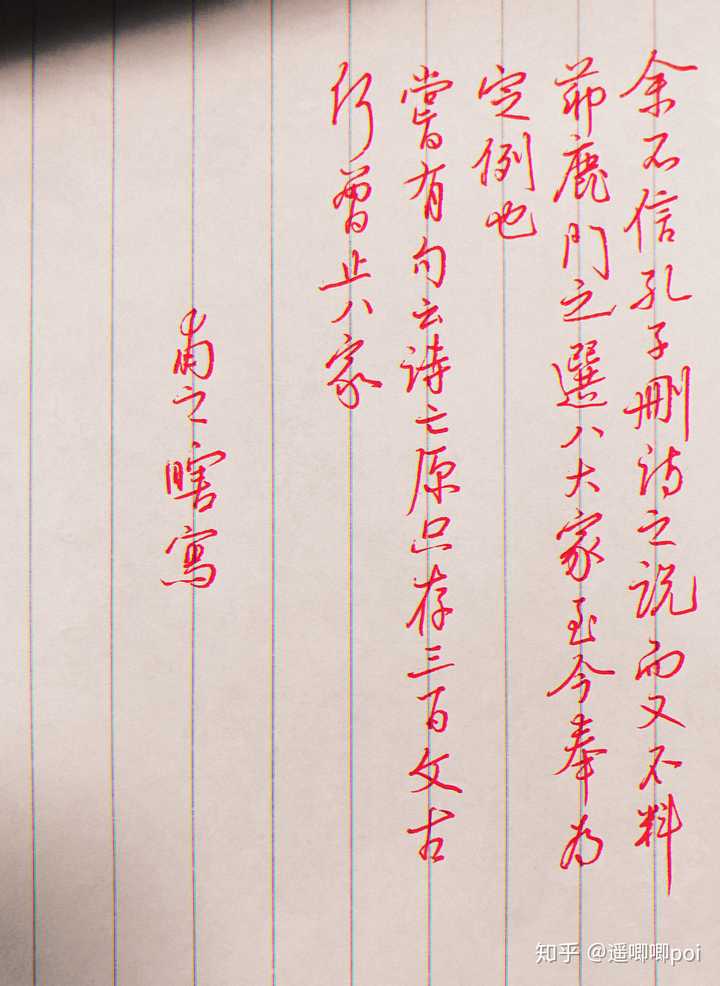 余不信孔子删诗之说而又不料
茆鹿门之選八大家至今奉为
定例也
嘗有句云诗亡原只存三百文古
何曾止八家
甫之瞎寫
知乎 @遥唧唧poi